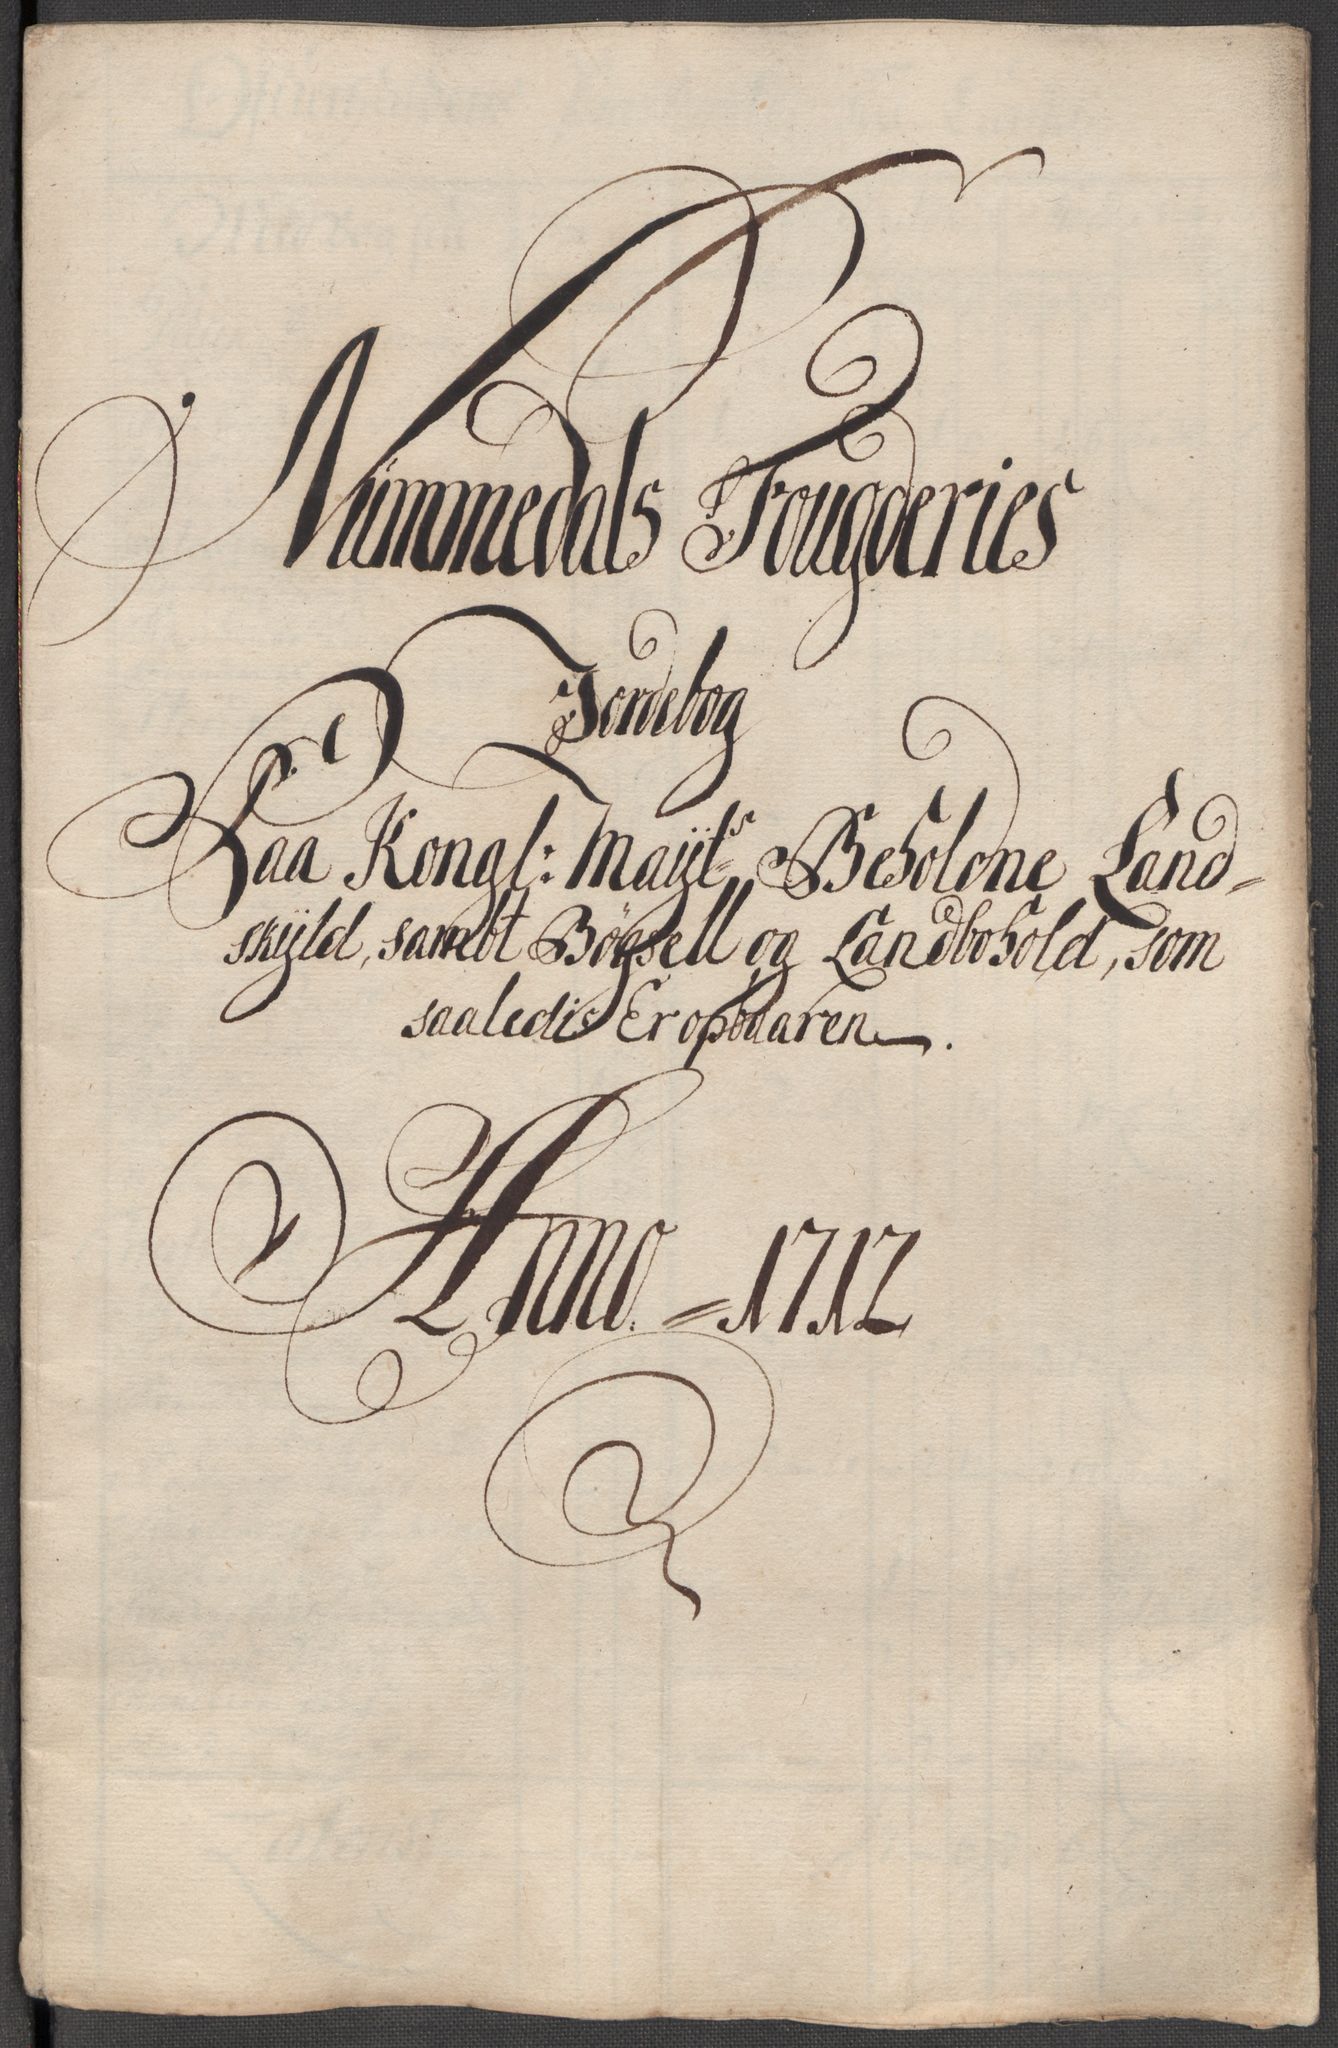 Nummedals Fougderies
Jordebog
Paa Kongl: Mayts Beholdne Land-
skyld, sambt Bögsell og Landbohold, som
saaledis Er opbaaren.
Anno. = 1712